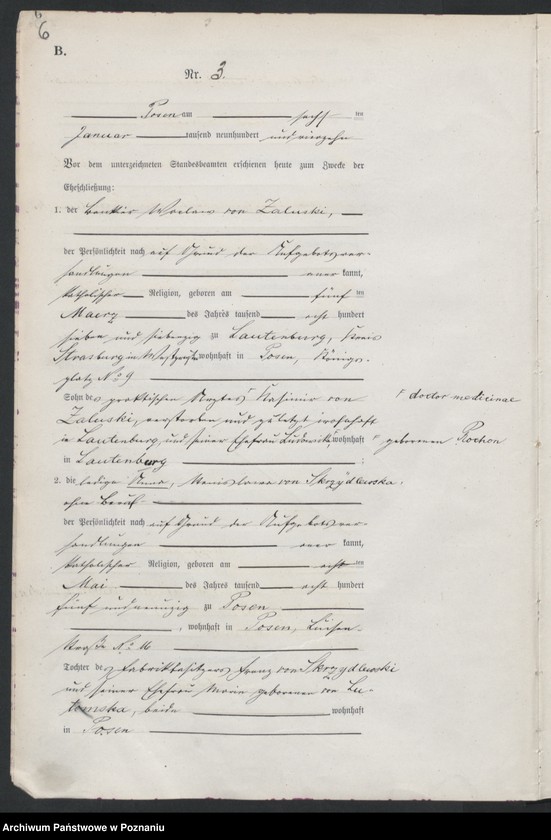 6
6
B.
Nr. 3.
Posen am sechsten
Januar tausend neunhundert und vierzehn
Vor dem unterzeichneten Standesbeamten erschienen heute zum Zwecke der
Eheschließung:
1. der Bankier Waclaw von Zaluski,
der Persönlichkeit nach auf Grund der Aufgebotsver-
handlungen anerkannt,
katholischer Religion, geboren am fünften
Maerz des Jahres tausend acht hundert
sieben und siebenzig zu Lautenburg, Kreis
Strasburg in Westpr. wohnhaft in Posen, Königs-
platz No 9
Sohn des praktischen Arztes Kasimir von ⌈ doctor medicinae
Zaluski, verstorben und zuletzt wohnhaft
in Lautenburg, und seiner Ehefrau Ludowika, wohnhaft ⌈ geborenen Rochon
in Lautenburg ;
2. die ledige Anna, Stanislawa von Skrzydlewska,
ohne Beruf
der Persönlichkeit nach auf Grund der Aufgebotsver-
handlungen anerkannt,
katholischer Religion, geboren am achten
Mai des Jahres tausend acht hundert
fünf und neunzig zu Posen
, wohnhaft in Posen, Luisen-
straße No
Tochter des Fabrikbesitzers Franz von Skrzydlewski
und seiner Ehefrau Maria geborenen von Lu-
tomska, beide wohnhaft
in Posen
Archiwum Państwowe w Poznaniu